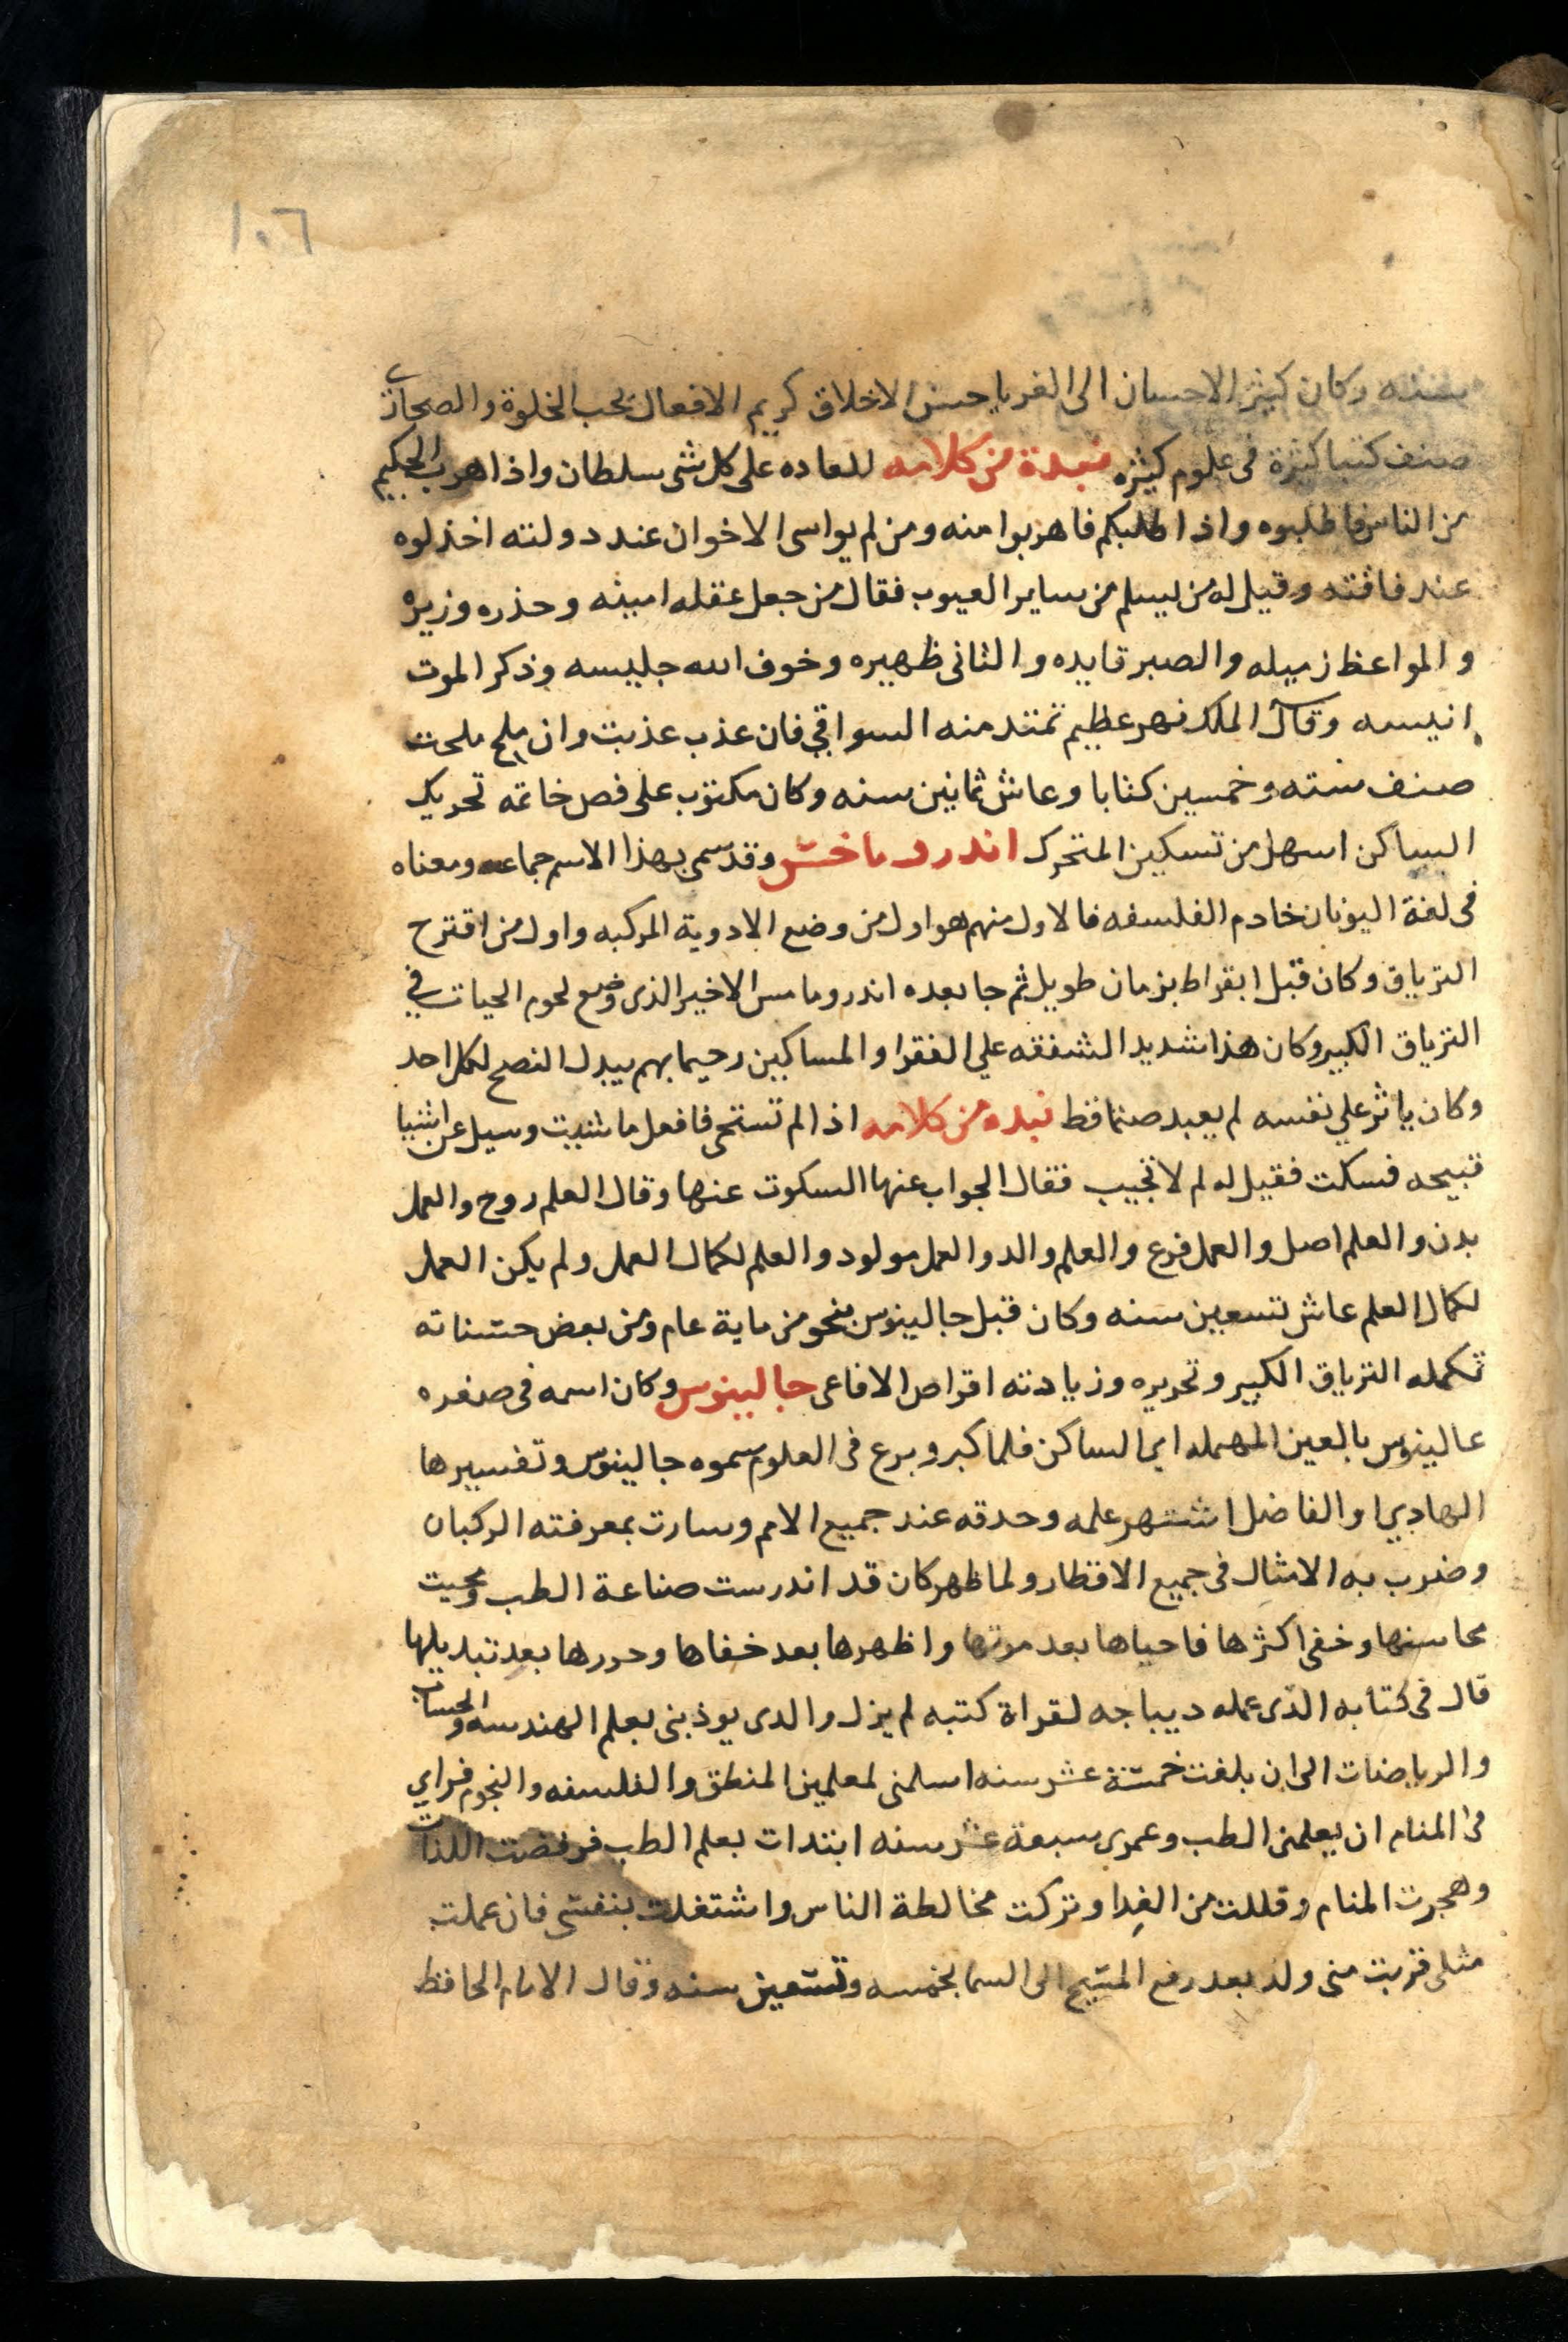 ١٠٦
وكان كثير الاحسان الى الغربا حسن الاخلاق كريم الافعال يحب الخلوة والصحارى
صنف كتبا كثرة فى علوم كثيره نبدة من كلامه للعاده على كل شى سلطان واذا هرب الحكيم
من الناس فاطلبوه واذا اطلبكم فاهربوا منه ومن لم يواسى الاخوان عند دولته اخذلوه
عند فاقته وقيل له من يسلم من ساير العيوب فقال من جعل عقله امينه وحذره وزيره
والمواعظ زميله والصبر قايده والثانى ظهيره وخوف الله جليسه وذكر الموت
انيسه وقال الملك نهر عظيم تمتد منه السواقي فان عذب عذبت وان ملح ملحت
صنف سته وخمسين كتابا وعاش ثمانين سنه وكان مكتوب على فص خاتمه تحريك
الساكن اسهل من تسكين المتحرك اندروماخس وقد سمى بهذا الاسم جماعه ومعناه
فى لغة اليونان خادم الفلسفه فالاول منهم هو اول من وضع الادوية المركبه واول من اقترح
الترياق وكان قبل ابقراط بزمان طويل ثم جا بعده اندروماس الاخير الذى وضع لحوم الحيات في
الترياق الكبير وكان هذا شديد الشفقه علي الفقرا والمساكين رحيما بهم يبدل النصح لكل احد
وكان ياثر علي نفسه لم يعبد صنما قط نبده من كلامه اذا لم تستحى فافعل ما شيت وسيل عن اشيا
قبيحه فسكت فقيل له لم لا تجيب فقال الجواب عنها السكوت عنها وقال العلم روح والعمل
بدن والعلم اصل والعمل فرع والعلم والد والعمل مولود والعلم لكمال العمل ولم يكن العمل
لكمال العلم عاش تسعين سنه وكان قبل جالينوس بنحو من ماية عام ومن بعض حسناته
تكمله الترياق الكبير وتحريره وزيادته اقراص الافاعى جالينوس وكان اسمه فى صغره
عالينوس بالعين المهمله اى الساكن فلما كبر وبرع فى العلوم سموه جالينوس وتفسيرها
الهادي او الفاضل اشتهر علمه وحدقه عند جميع الامم وسارت بمعرفته الركبان
وضرب به الامثال فى جميع الاقطار ولما ظهر كان قد اندرست صناعة الطب ومحيت
محاسنها وخفى اكثرها فاحياها بعد موتها واظهرها بعد خفاها وحررها بعد تبديلها
قال فى كتابه الذى عمله ديباجه لقراة كتبه لم يزل والدى يوذبنى بعلم الهندسه والحساب
والرياضات الى ان بلغت خمسة عشر سنه اسلمنى لمعلمين المنطق والفلسفه والنجوم فراي
فى المنام ان يعلمنى الطب وعمرى سبعة عشر سنه ابتدات بعلم الطب فرفضت اللذات
وهجرت المنام وقللت من الغدا وتركت مخالطة الناس واشتغلت بنفسى فان عملت
مثلى قربت منى ولد بعد رفع المسيح الى السما بخمسه وتسعين سنه وقال الامام الحافظ